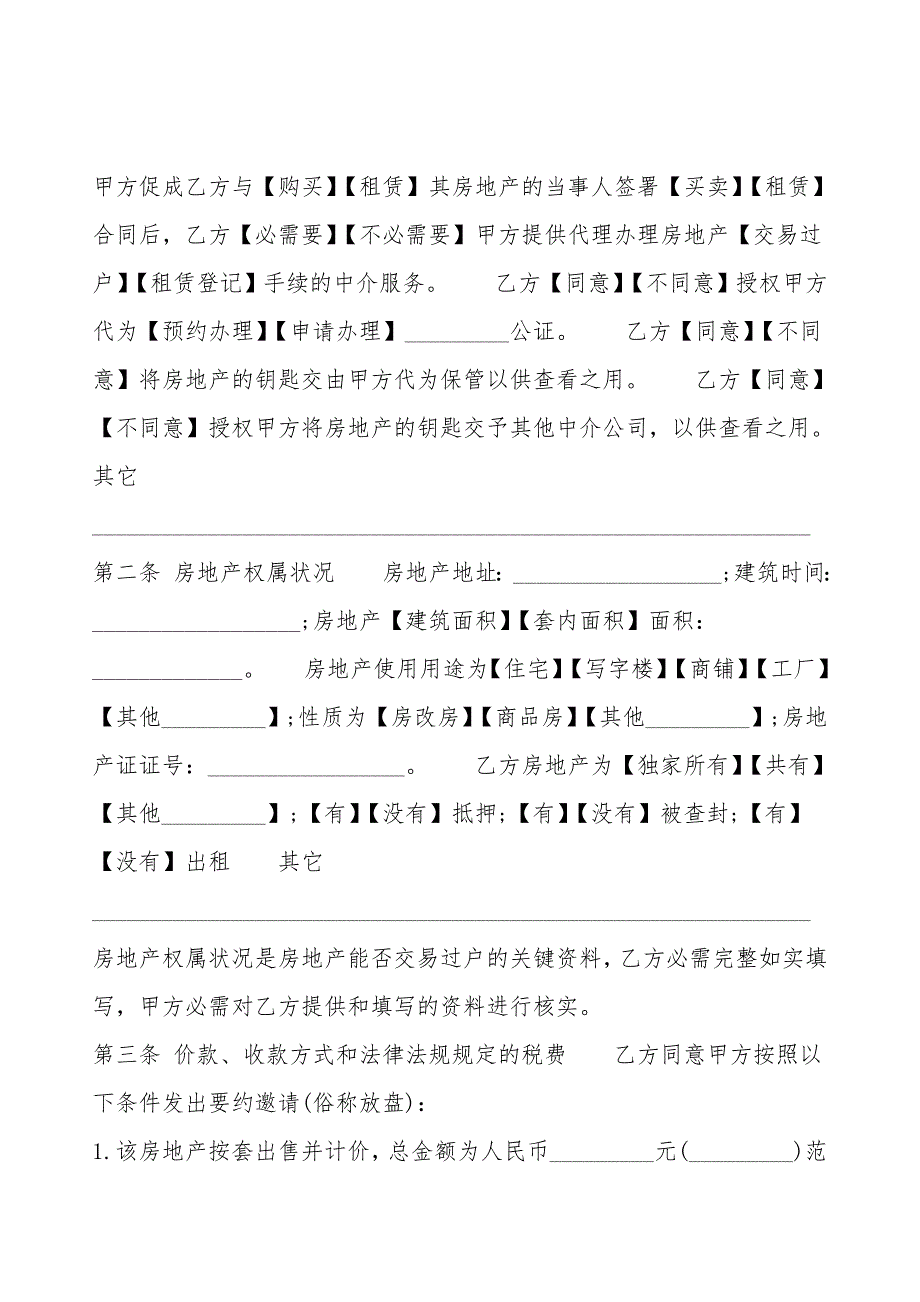 甲方促成乙方与【购买】【租赁】其房地产的当事人签署【买卖】【租赁】
合同后，乙方【必需要】【不必需要】甲方提供代理办理房地产【交易过
户】【租赁登记】手续的中介服务。　　乙方【同意】【不同意】授权甲方
代为【预约办理】【申请办理】_________公证。　　乙方【同意】【不同
意】将房地产的钥匙交由甲方代为保管以供查看之用。　　乙方【同意】
【不同意】授权甲方将房地产的钥匙交予其他中介公司，以供查看之用。
其它
______________________________________________________________
第二条 房地产权属状况　　房地产地址：__________________;建筑时间：
__________________;房地产【建筑面积】【套内面积】面积：
_____________。　　房地产使用用途为【住宅】【写字楼】【商铺】【工厂】
【其他_________】;性质为【房改房】【商品房】【其他_________】;房地
产证证号：_________________。　　乙方房地产为【独家所有】【共有】
【其他_________】;【有】【没有】抵押;【有】【没有】被查封;【有】
【没有】出租　　其它
______________________________________________________________
房地产权属状况是房地产能否交易过户的关键资料，乙方必需完整如实填
写，甲方必需对乙方提供和填写的资料进行核实。
第三条 价款、收款方式和法律法规规定的税费　　乙方同意甲方按照以
下条件发出要约邀请(俗称放盘)：
1.该房地产按套出售并计价，总金额为人民币_________元(_________)范